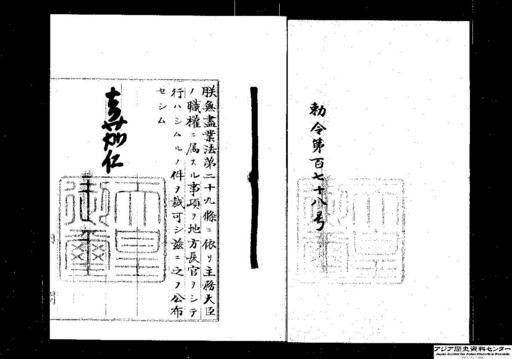 勅令第百七十八号
朕無盡業法第二十九條ニ依リ主務大臣
ノ職權ニ属スル事項ヲ地方長官ヲシテ
行ハシムルノ件ヲ裁可シ茲ニ之ヲ公布
セシム
嘉仁
天皇
御璽
アジア歴史資料センター
Japan Center for Asian Historical Records